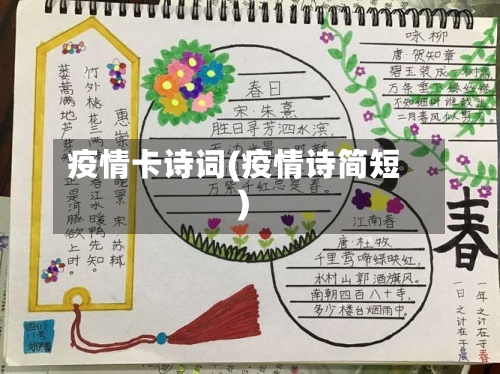 疫情卡诗词(疫情诗简短
)
惠崇
景 宋·苏轼
竹外桃花三两
春江水暖鸭先知。
蒌蒿满地芦
正是河豚欲上时。
春日
宋·朱熹
胜日寻芳泗水滨,
万紫千红总是春。
咏柳
唐·贺知章
碧玉装成一树高
万条垂下绿丝绦
不知细叶谁裁出
二月春风似剪刀。
江南春
唐·杜牧
千里莺啼绿映红,
水村山郭酒旗风。
南朝四百八十寺,
多少楼台烟雨中。
春
一年之计在于春
一日之计在于晨